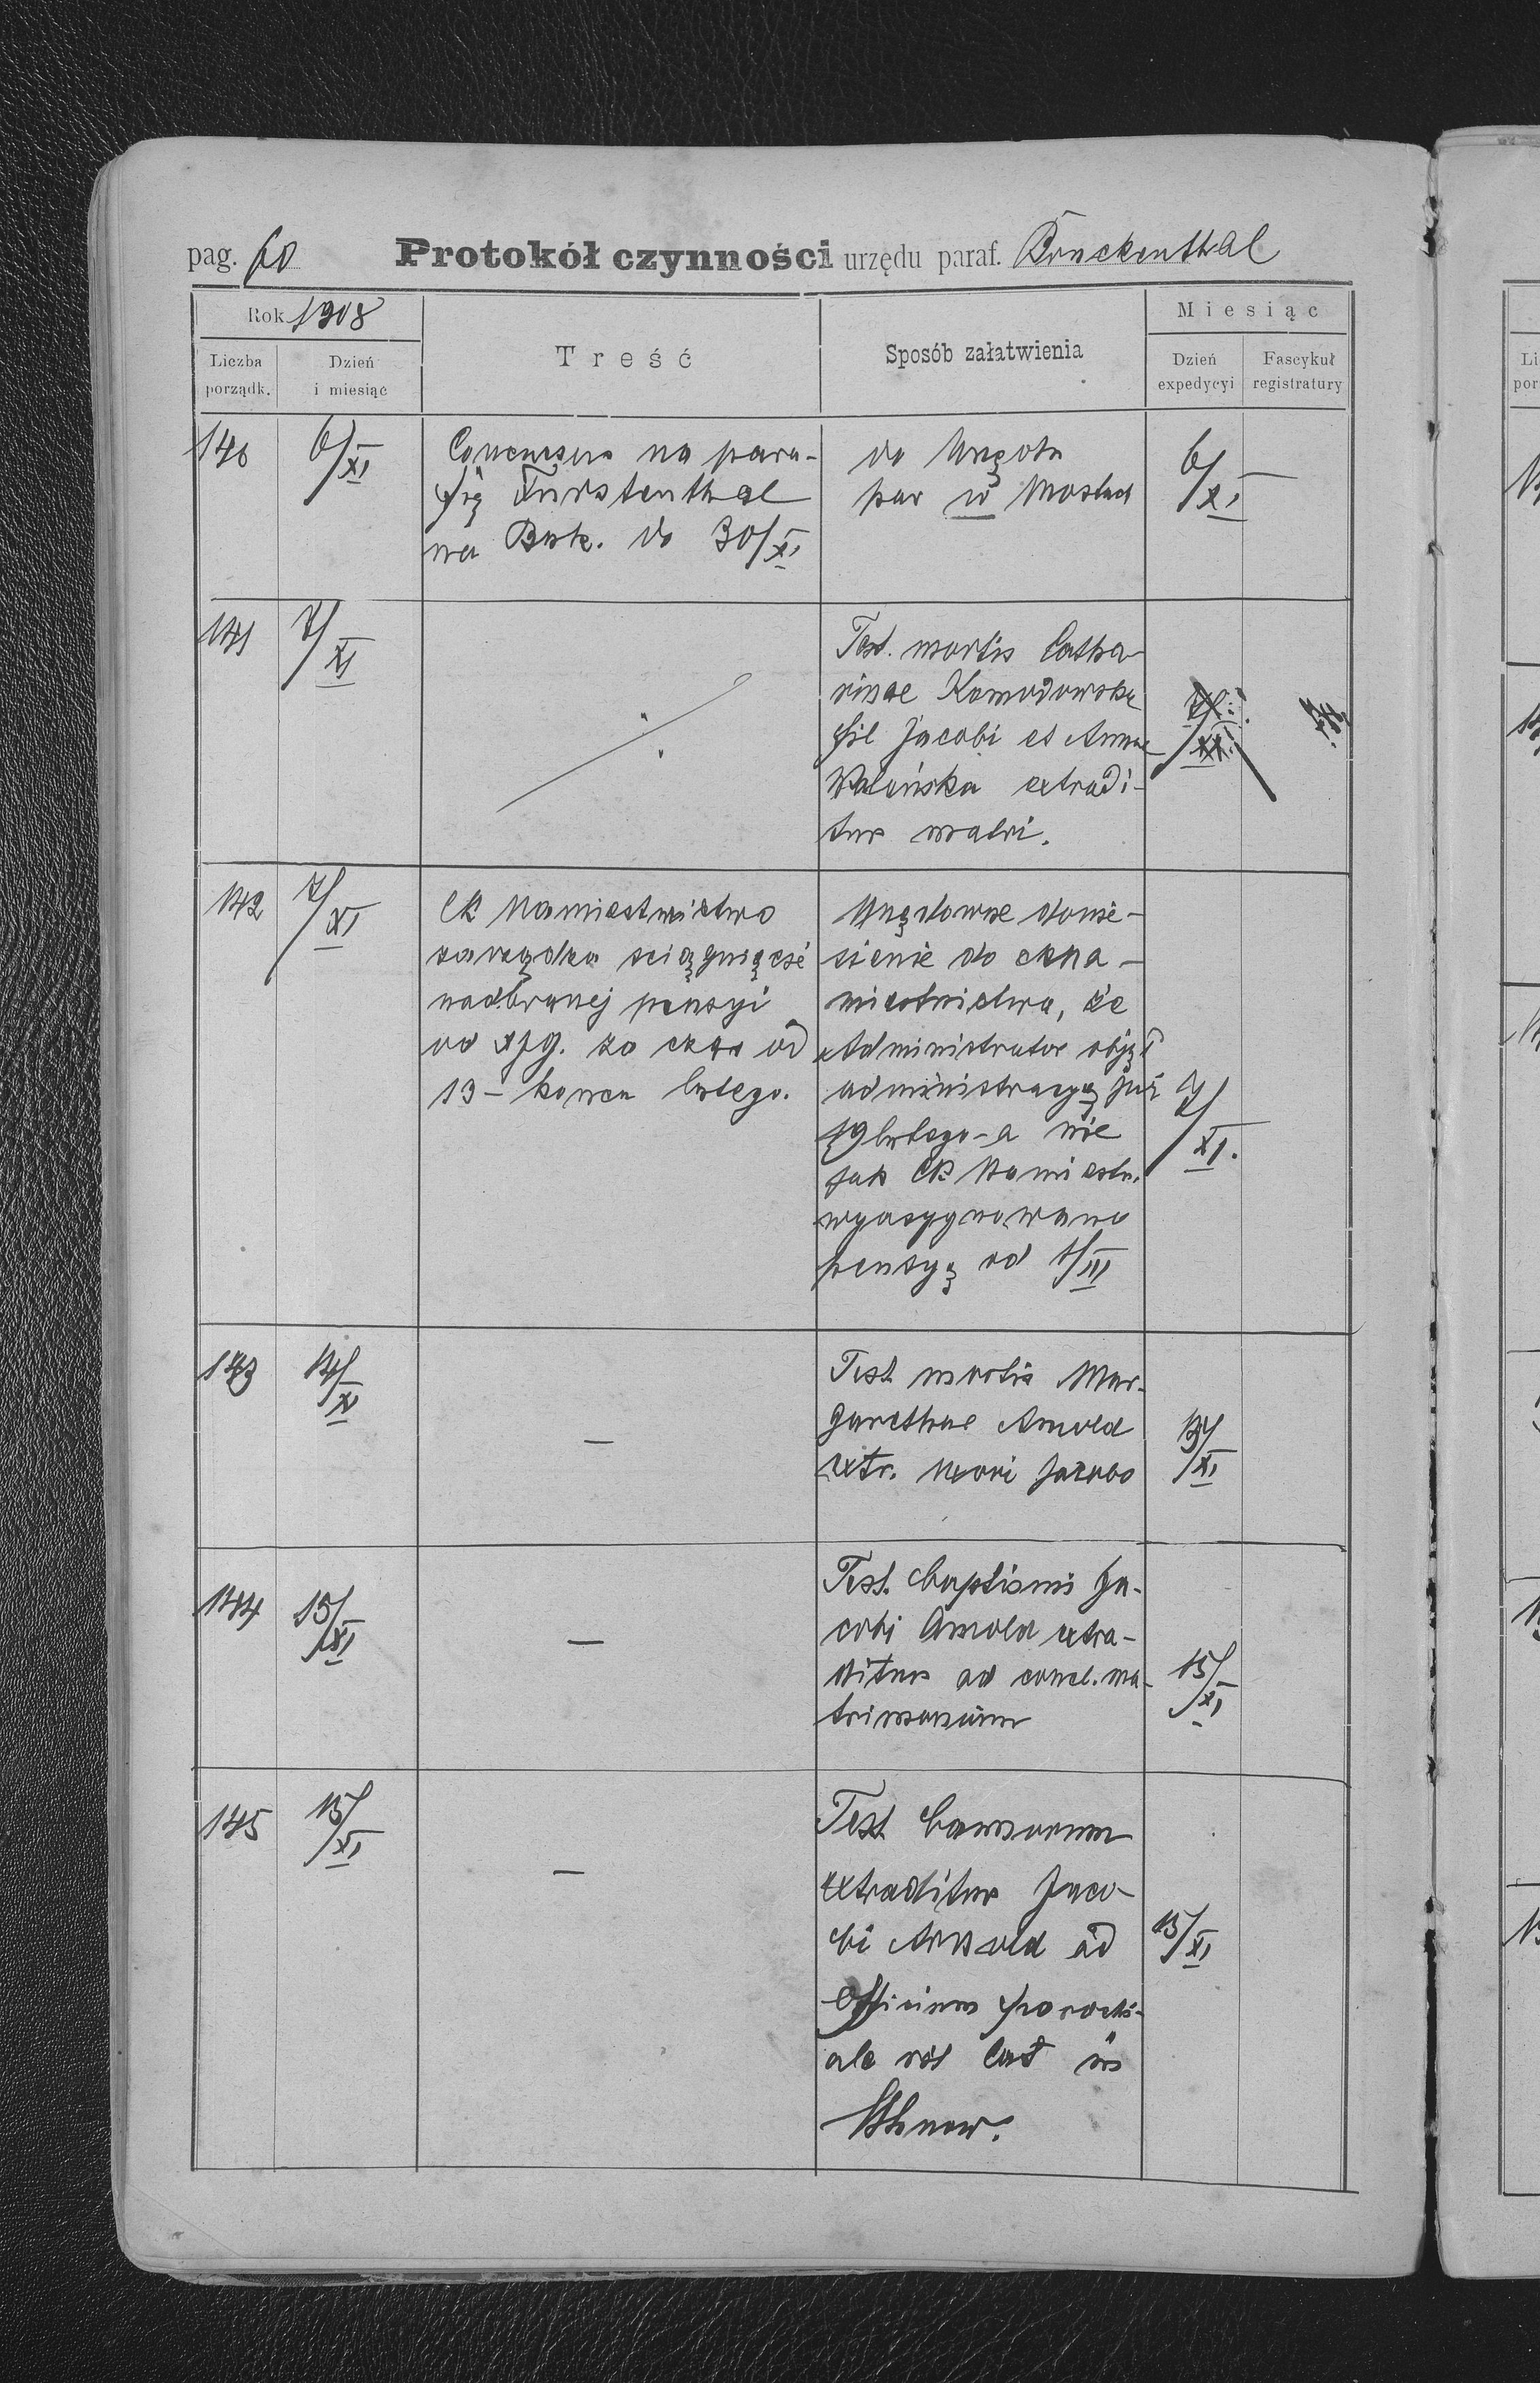 pag. 60 Protokół czynności urzędu paraf. Bruckenthal
Rok 1908
Liczba porządk.
Dzień i miesiąc
Treść
Sposób załatwienia
Miesiąc
Dzień expedycyi
Fascykuł registratury
140 6/XI
Concursus na para-
fię Furstenthal
na Buk. do 30/XI
do Urzędu
par w Mostach
6/XI
141 7/XI
Test. mortis Catha-
rinae Komodowska
fil Jacobi et Annae
Waleńska extradi-
tur matri.
142 7/XI
CK Namiestnictwo
zarządza sciągnięcie
nadbranej pensyi
od xjg. za czas od
13 - konca lutego.
Urzędowne donie-
sienie do ckNa-
miestnictwa, że
Administrator objął
administracyę już
19 lutego - a nie
jak CK Namiestn.
wyasygnowano
pensyę od 1/III
7/XI.
143 14/XI
—
Test mortis Mar-
garethae Arnold
extr. uxori Jacobo
14/XI
144 15/XI
—
Test. baptismi Ja-
cobi Arnold extra-
ditur ad concl. ma-
trimonium
15/XI
145 15/XI
—
Test bannorum
extraditur Jaco-
bi Arnold ad
Officium parochi-
ale rit lat in
Uhnow.
15/XI